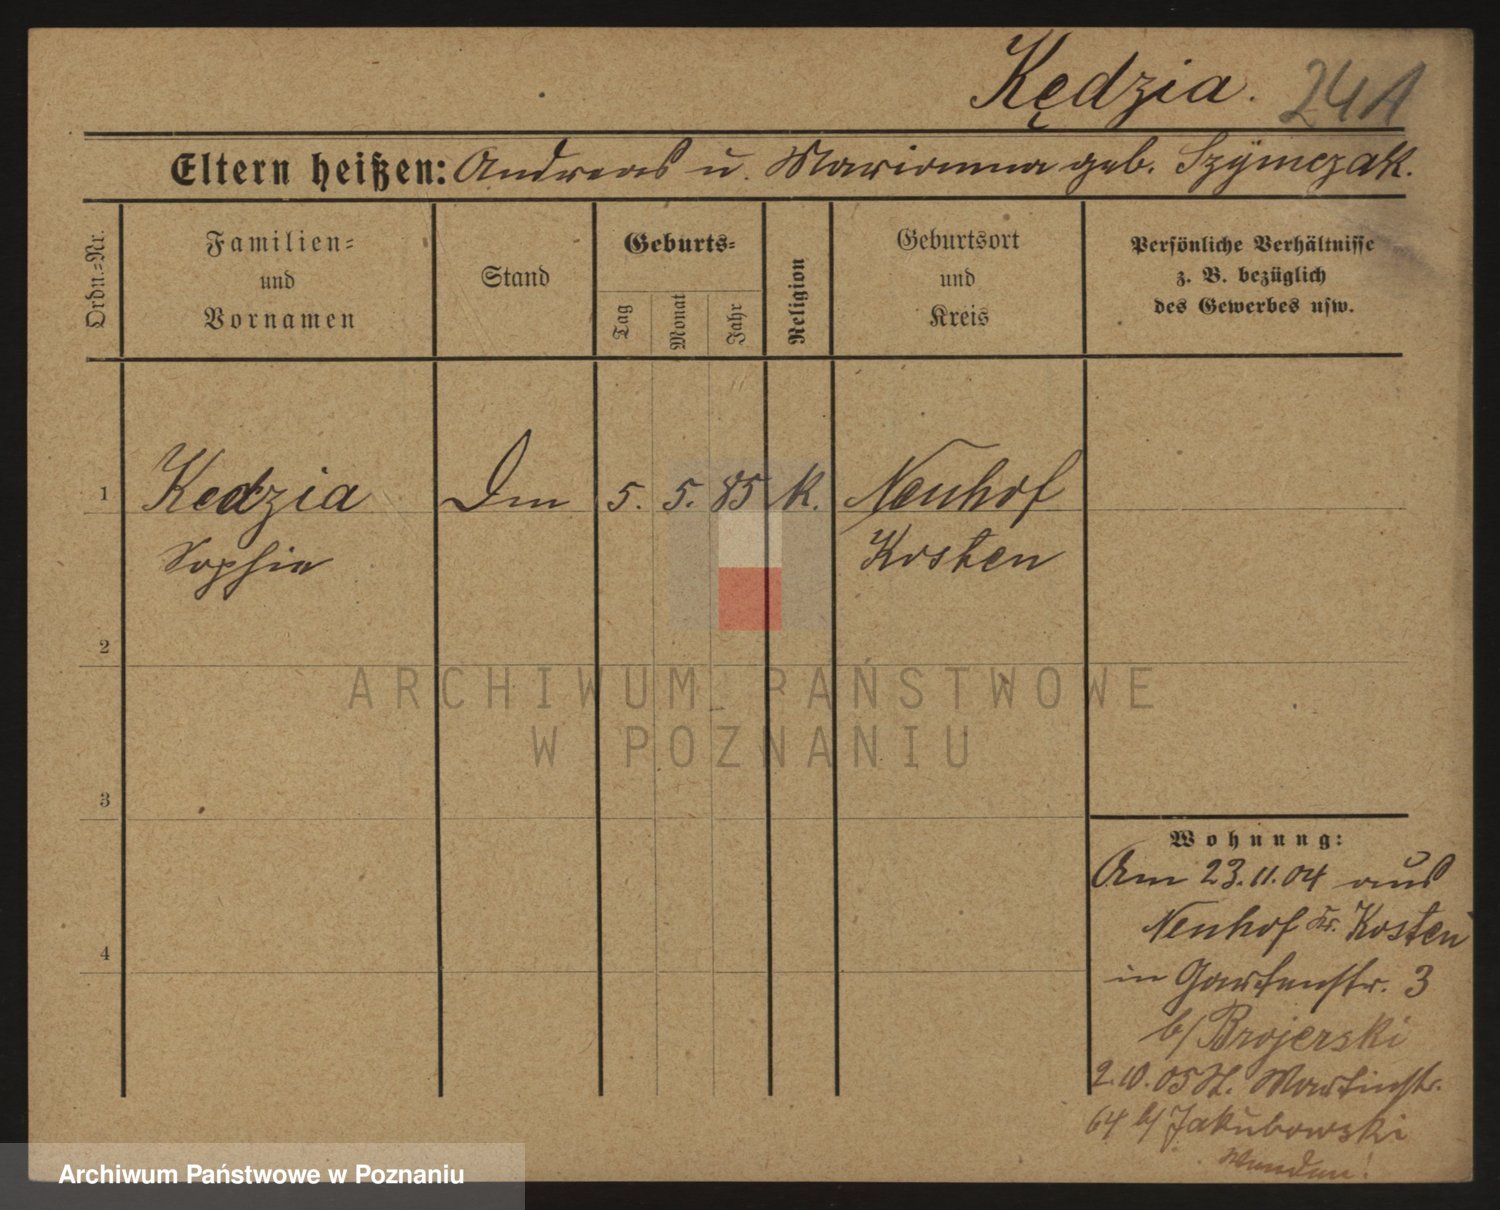 Kędzia. 24A
Eltern heißen: Andreas u. Marianna geb. Szymczak.
Ordn.=Nr.
Familien=
und
Vornamen
Stand
Geburts=
Tag
Monat
Jahr
Religion
Geburtsort
und
Kreis
Persönliche Verhältnisse
z. B. bezüglich
des Gewerbes usw.
1 Kedzia Dm 5. 5. 85 k. Neuhof
Sophie Kosten
2
ARCHIWUM PAŃSTWOWE
W POZNANIU
3
Wohnung:
Am 23.11.04 aus
Neuhof Kr. Kosten
4
in Gartenstr. 3
b/ Brojerski
2.10.05 St. Martinstr.
64 b/ Jakubowski
Wenden!
Archiwum Państwowe w Poznaniu